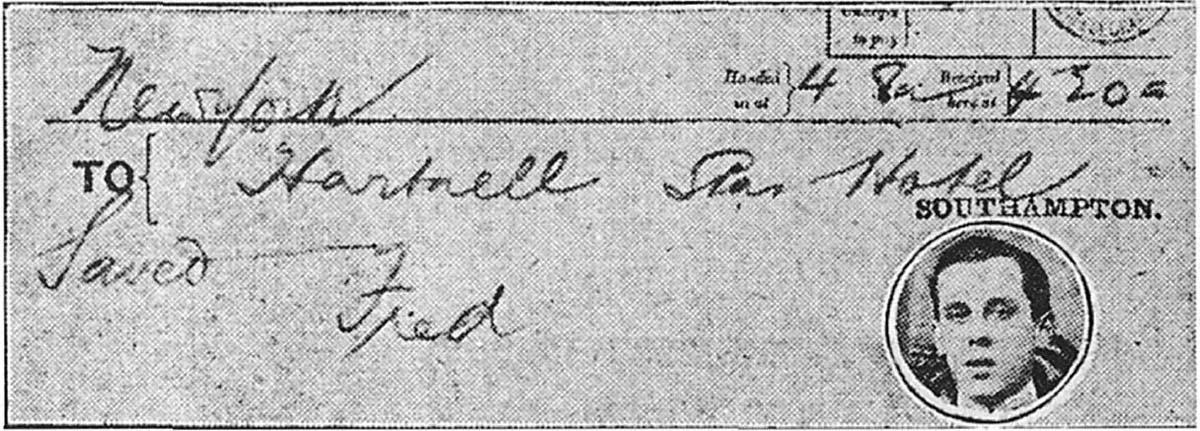 Charges
to pay
New York
Handed in at } 4 8 Received here at } 4 20
TO { Hartnell Star Hotel
SOUTHAMPTON.
Saved
Fred